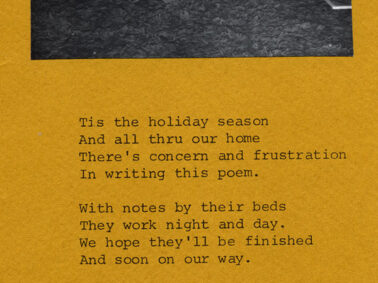 Tis the holiday season
And all thru our home
There's concern and frustration
In writing this poem.
With notes by their beds
They work night and day.
We hope they'll be finished
And soon on our way.